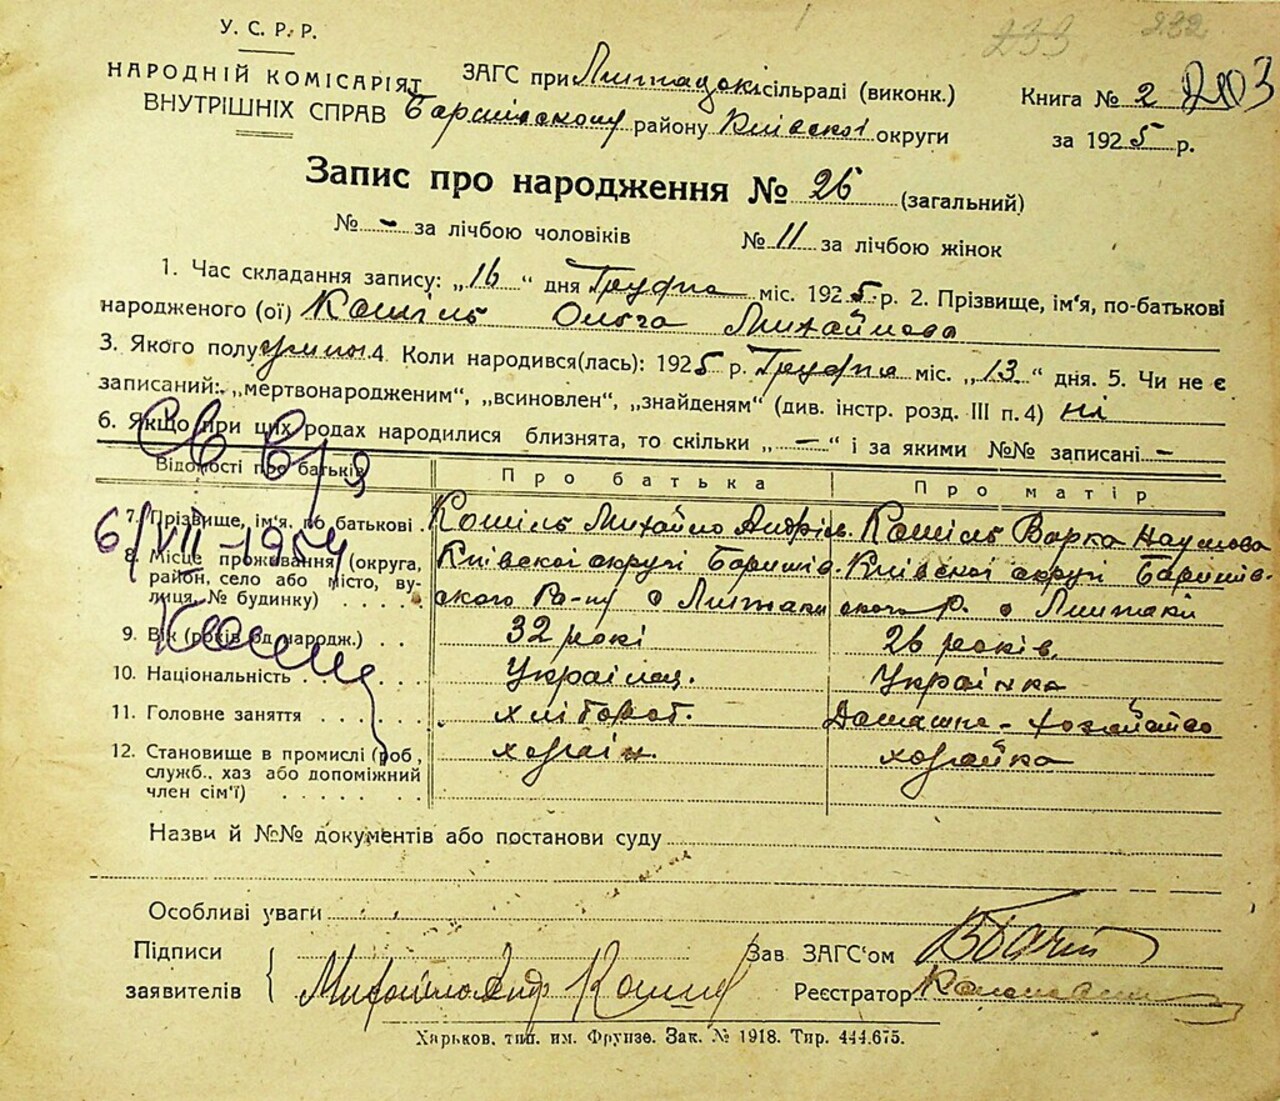 233 232
У. С. Р. Р.
НАРОДНІЙ КОМІСАРІЯТ
ВНУТРІШНІХ СПРАВ
ЗАГС при сільраді (виконк.)
району Київскої округи
Книга № 2 203
за 1925 р.
Запис про народження № 26 (загальний)
№ - за лічбою чоловіків № 11 за лічбою жінок
1. Час складання запису: „16“ дня Грудня міс. 1925 р. 2. Прізвище, ім‘я, по-батькові
народженого (ої) Кошіль Ольга Михайлова
3. Якого полу 4. Коли народився(лась): 1925 р. Грудня міс. „13“ дня. 5. Чи не є
записаний: „мертвонародженим“, „всиновлен“, „знайденям“ (див. інстр. розд. III п. 4) ні
6. Якщо при цих родах народилися близнята, то скільки „—“ і за якими №№ записані —
Відомості про батьків Про батька Про матір
7. Прізвище, ім‘я, по батькові Кошіль Михайло Андрієв. Кошіль Варка Наумова
8. Місце проживання (округа, район, село або місто, вулиця, № будинку) Київскої округі Баришів. Київскої округі Баришів.
ского Ра-ну с Лихтаки ского р. с Лихтаки
9. Вік (років од народж.) 32 рокі 26 років.
10. Національність Украінец. Украінка
11. Головне заняття хлібороб. Домашне-хозяйство
12. Становище в промислі (роб., служб., хаз або допоміжний член сім‘ї) хозяін. хозяйка
6/VII-1954
Назви й №№ документів або постанови суду
Особливі уваги
Підписи
заявителів Михайло Андр Кошіль
Зав ЗАГС‘ом
Реєстратор
Харьков, тип. им. Фрунзе. Зак. № 1918. Тир. 444.675.